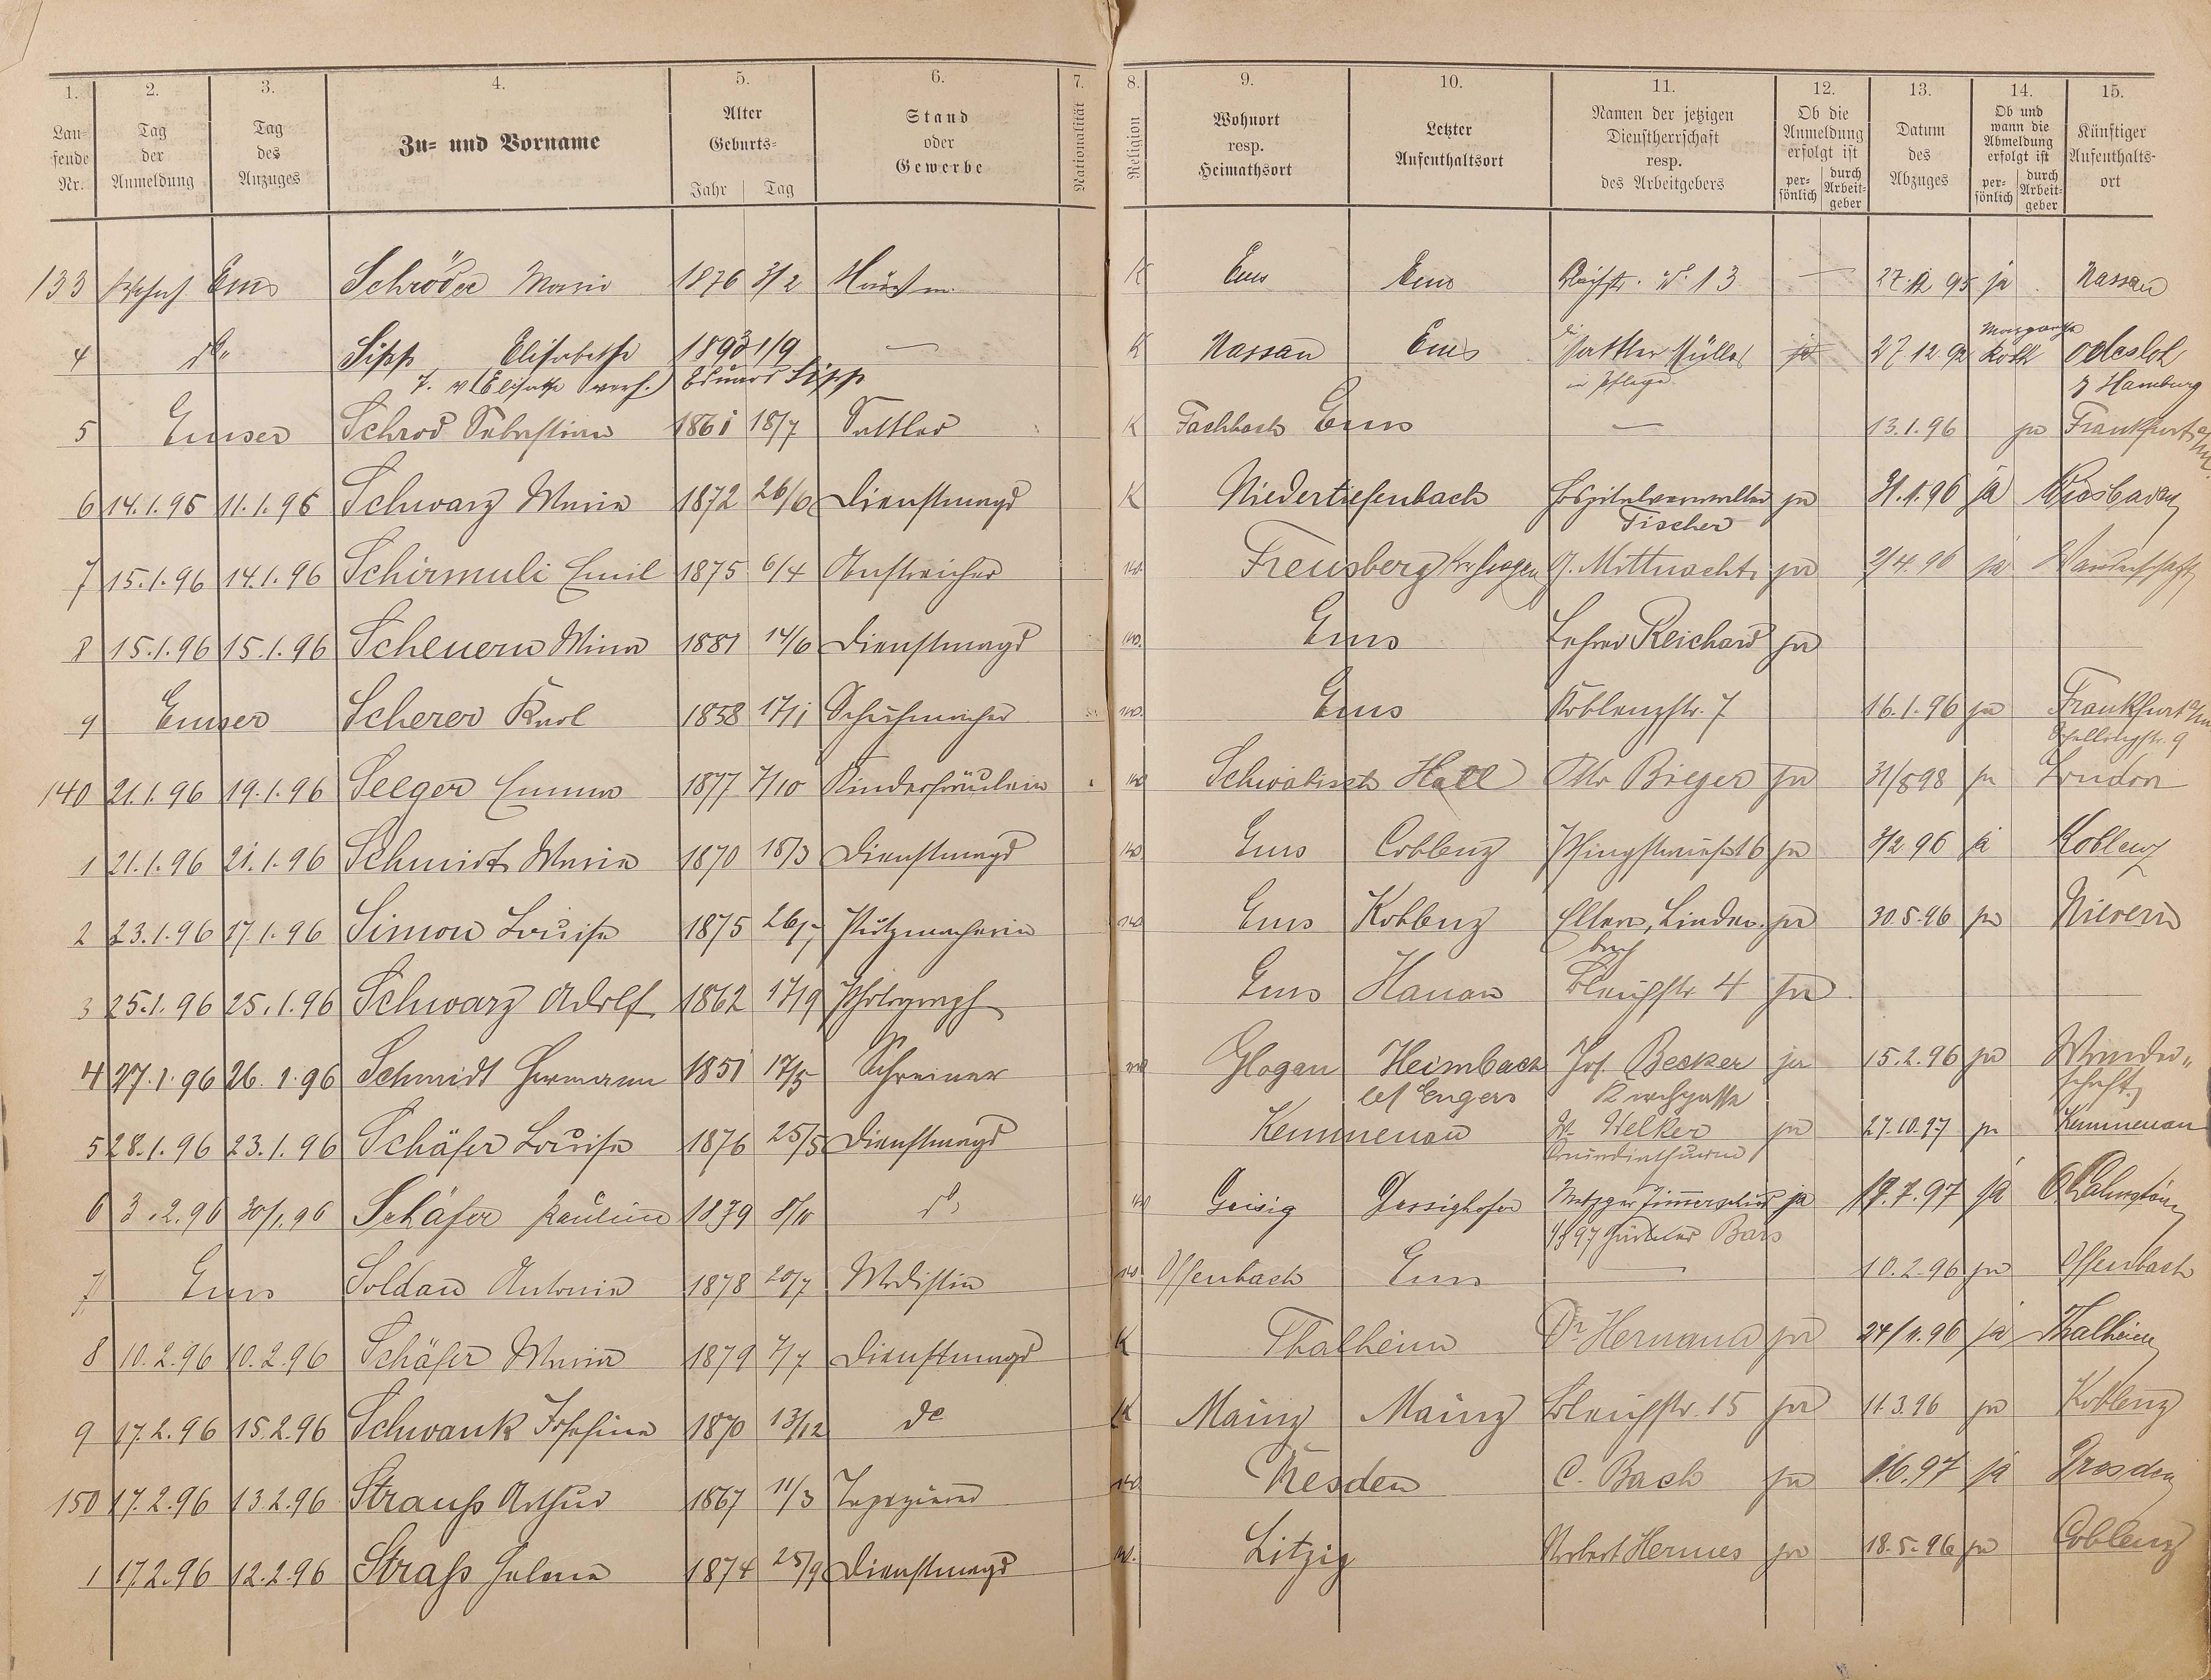 1. 2. 3. 4. 5. 6. 7. 8. 9. 10. 11. 12. 13. 14. 15.
Lau=fende Nr. Tag der Anmeldung Tag des Anzuges Zu= und Vorname Alter Geburts= Jahr Tag Stand oder Gewerbe Nationalität Religion Wohnort resp. Heimathsort Letzter Aufenthaltsort Namen der jetzigen Dienstherrschaft resp. des Arbeitgebers Ob die Anmeldung erfolgt ist per=sönlich durch Arbeit=geber Datum des Abzuges Ob und wann die Abmeldung erfolgt ist per=sönlich durch Arbeit=geber Künftiger Aufenthalts=ort
133 Ems Schröder Maria 1876 3/2 K Ems Ems No 13 — 27.12 95 ja Nassau
4 do Sipp Elisabetha 1893 1/9 — K Nassau Ems Sattler Müller ja 27 12 Odesloh
Eduard Sipp in Pflege Hamburg
5 Emser Schrod Sebastian 1861 18/7 Sattler K Fachbach Ems — 13.1.96 ja Frankfurt a/M
6 14.1.96 11.1.96 Schwarz Maria 1872 26/6 Dienstmagd K Niedertiefenbach Hospitalverwalter ja 31.1.96 ja Wiesbaden
Fischer
7 15.1.96 14.1.96 Schirmuli Emil 1875 6/4 Anstreicher ev. Freusberg G. Mittnacht ja 2/4.96 ja Wanderschaft
8 15.1.96 15.1.96 Scheuern Mina 1881 14/6 Dienstmagd ev. Ems Lehrer Reichard ja
9 Emser Scherer Karl 1858 17/1 Schuhmacher ev. Ems Koblenzstr. 7 16.1.96 ja Frankfurt a/M
Schellingstr. 9
140 21.1.96 19.1.96 Seeger Emma 1877 7/10 Kinderfräulein ev Schwäbisch Hall Otto Bieger ja 31/8 98 ja London
1 21.1.96 21.1.96 Schmidt Maria 1870 18/3 Dienstmagd ev Ems Coblenz 6 ja 3/2 96 ja Koblenz
2 23.1.96 17.1.96 Simon Louise 1875 Putzmacherin ev Ems Koblenz Eltern, Linden ja 30.5.96 ja Nievern
bach
3 25.1.96 25.1.96 Schwarz Adolf 1862 17/9 Photograph Ems Hanau Bleichstr. 4 ja
4 27.1.96 26.1.96 Schmidt Hermann 1851 17/5 Schreiner ev Glogau Heimbach Jos. Becker ja 15.2.96 ja Wander=
bei Engers Kirchgasse schaft
5 28.1.96 23.1.96 Schäfer Louise 1876 25/5 Dienstmagd Kemmenau W. Welker ja 27.10.97 ja Kemmenau
6 3.2.96 30/1 96 Schäfer Pauline 1879 8/10 do ev Geisig Dessighofen Metzger ja 19.7.97 ja
Bars
7 Ems Soldan Antonia 1878 20/7 Modistin ev Offenbach Ems — 10.2.96 ja Offenbach
8 10.2.96 10.2.96 Schäfer Maria 1879 7/7 Dienstmagd K Thalheim Dr Hermann ja 24/11.96 ja Thalheim
9 17.2.96 15.2.96 Schwank Josefine 1870 13/12 do K Mainz Mainz Bleichstr. 15 ja 11.3.96 ja Koblenz
150 17.2.96 13.2.96 Strauß Arthur 1867 11/3 Tapezierer ev Dresden C. Bach ja 1.6.97 ja Dresden
1 17.2.96 12.2.96 Straß Helena 1874 25/9 Dienstmagd ev. Litzig Norbert Hermes ja 18.5.96 ja Coblenz